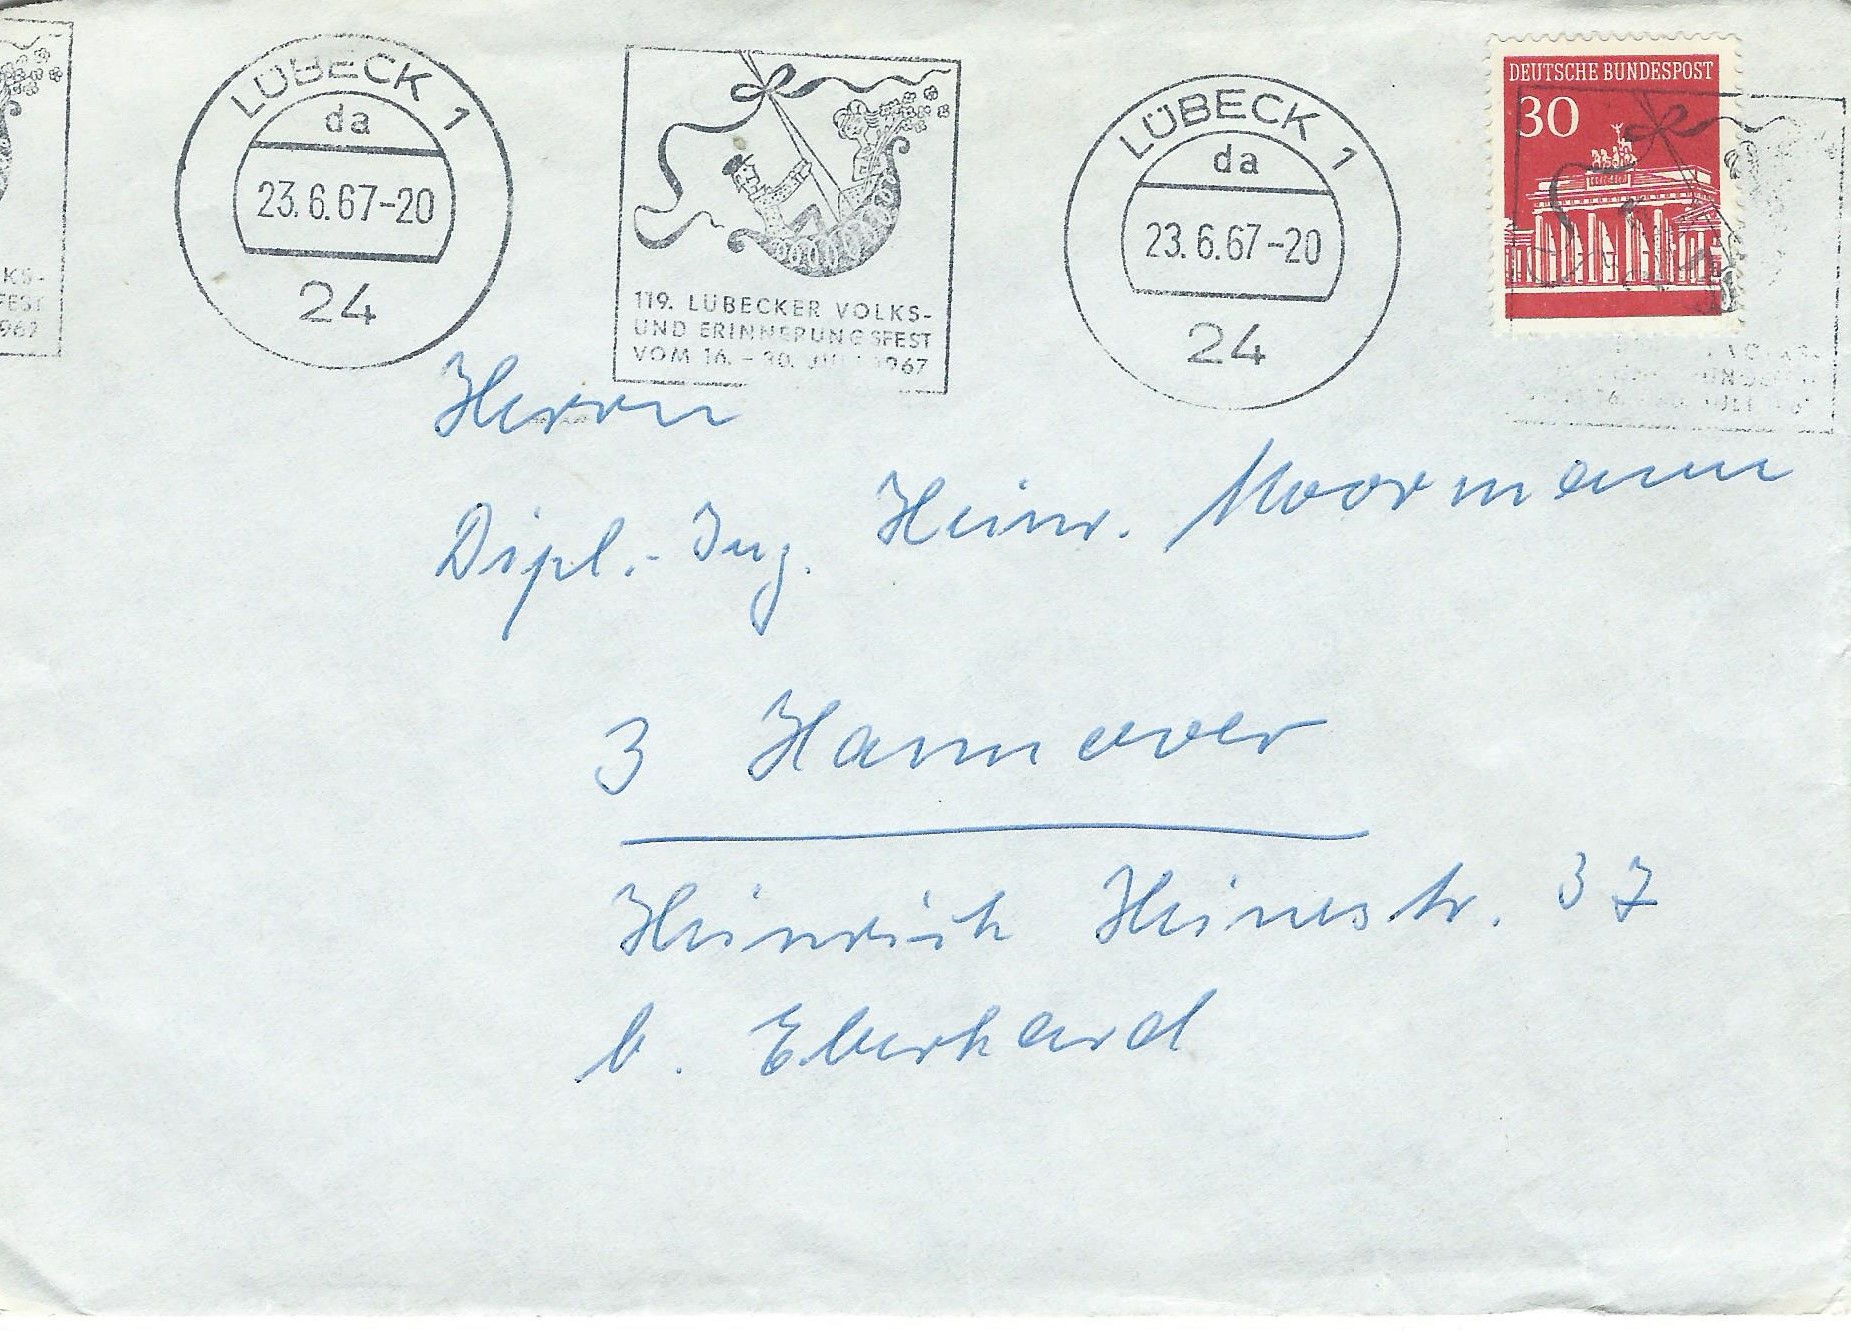 KS-
FEST
1967
LÜBECK 1
da
23.6.67-20
24
119. LÜBECKER VOLKS-
UND ERINNERUNGSFEST
VOM 16. - 30. JULI 1967
LÜBECK 1
da
23.6.67-20
24
DEUTSCHE BUNDESPOST
30
Herrn
Dipl.-Ing. Heinr. Moormann
3 Hannover
Heinrich Heinestr. 37
b. Eberhard